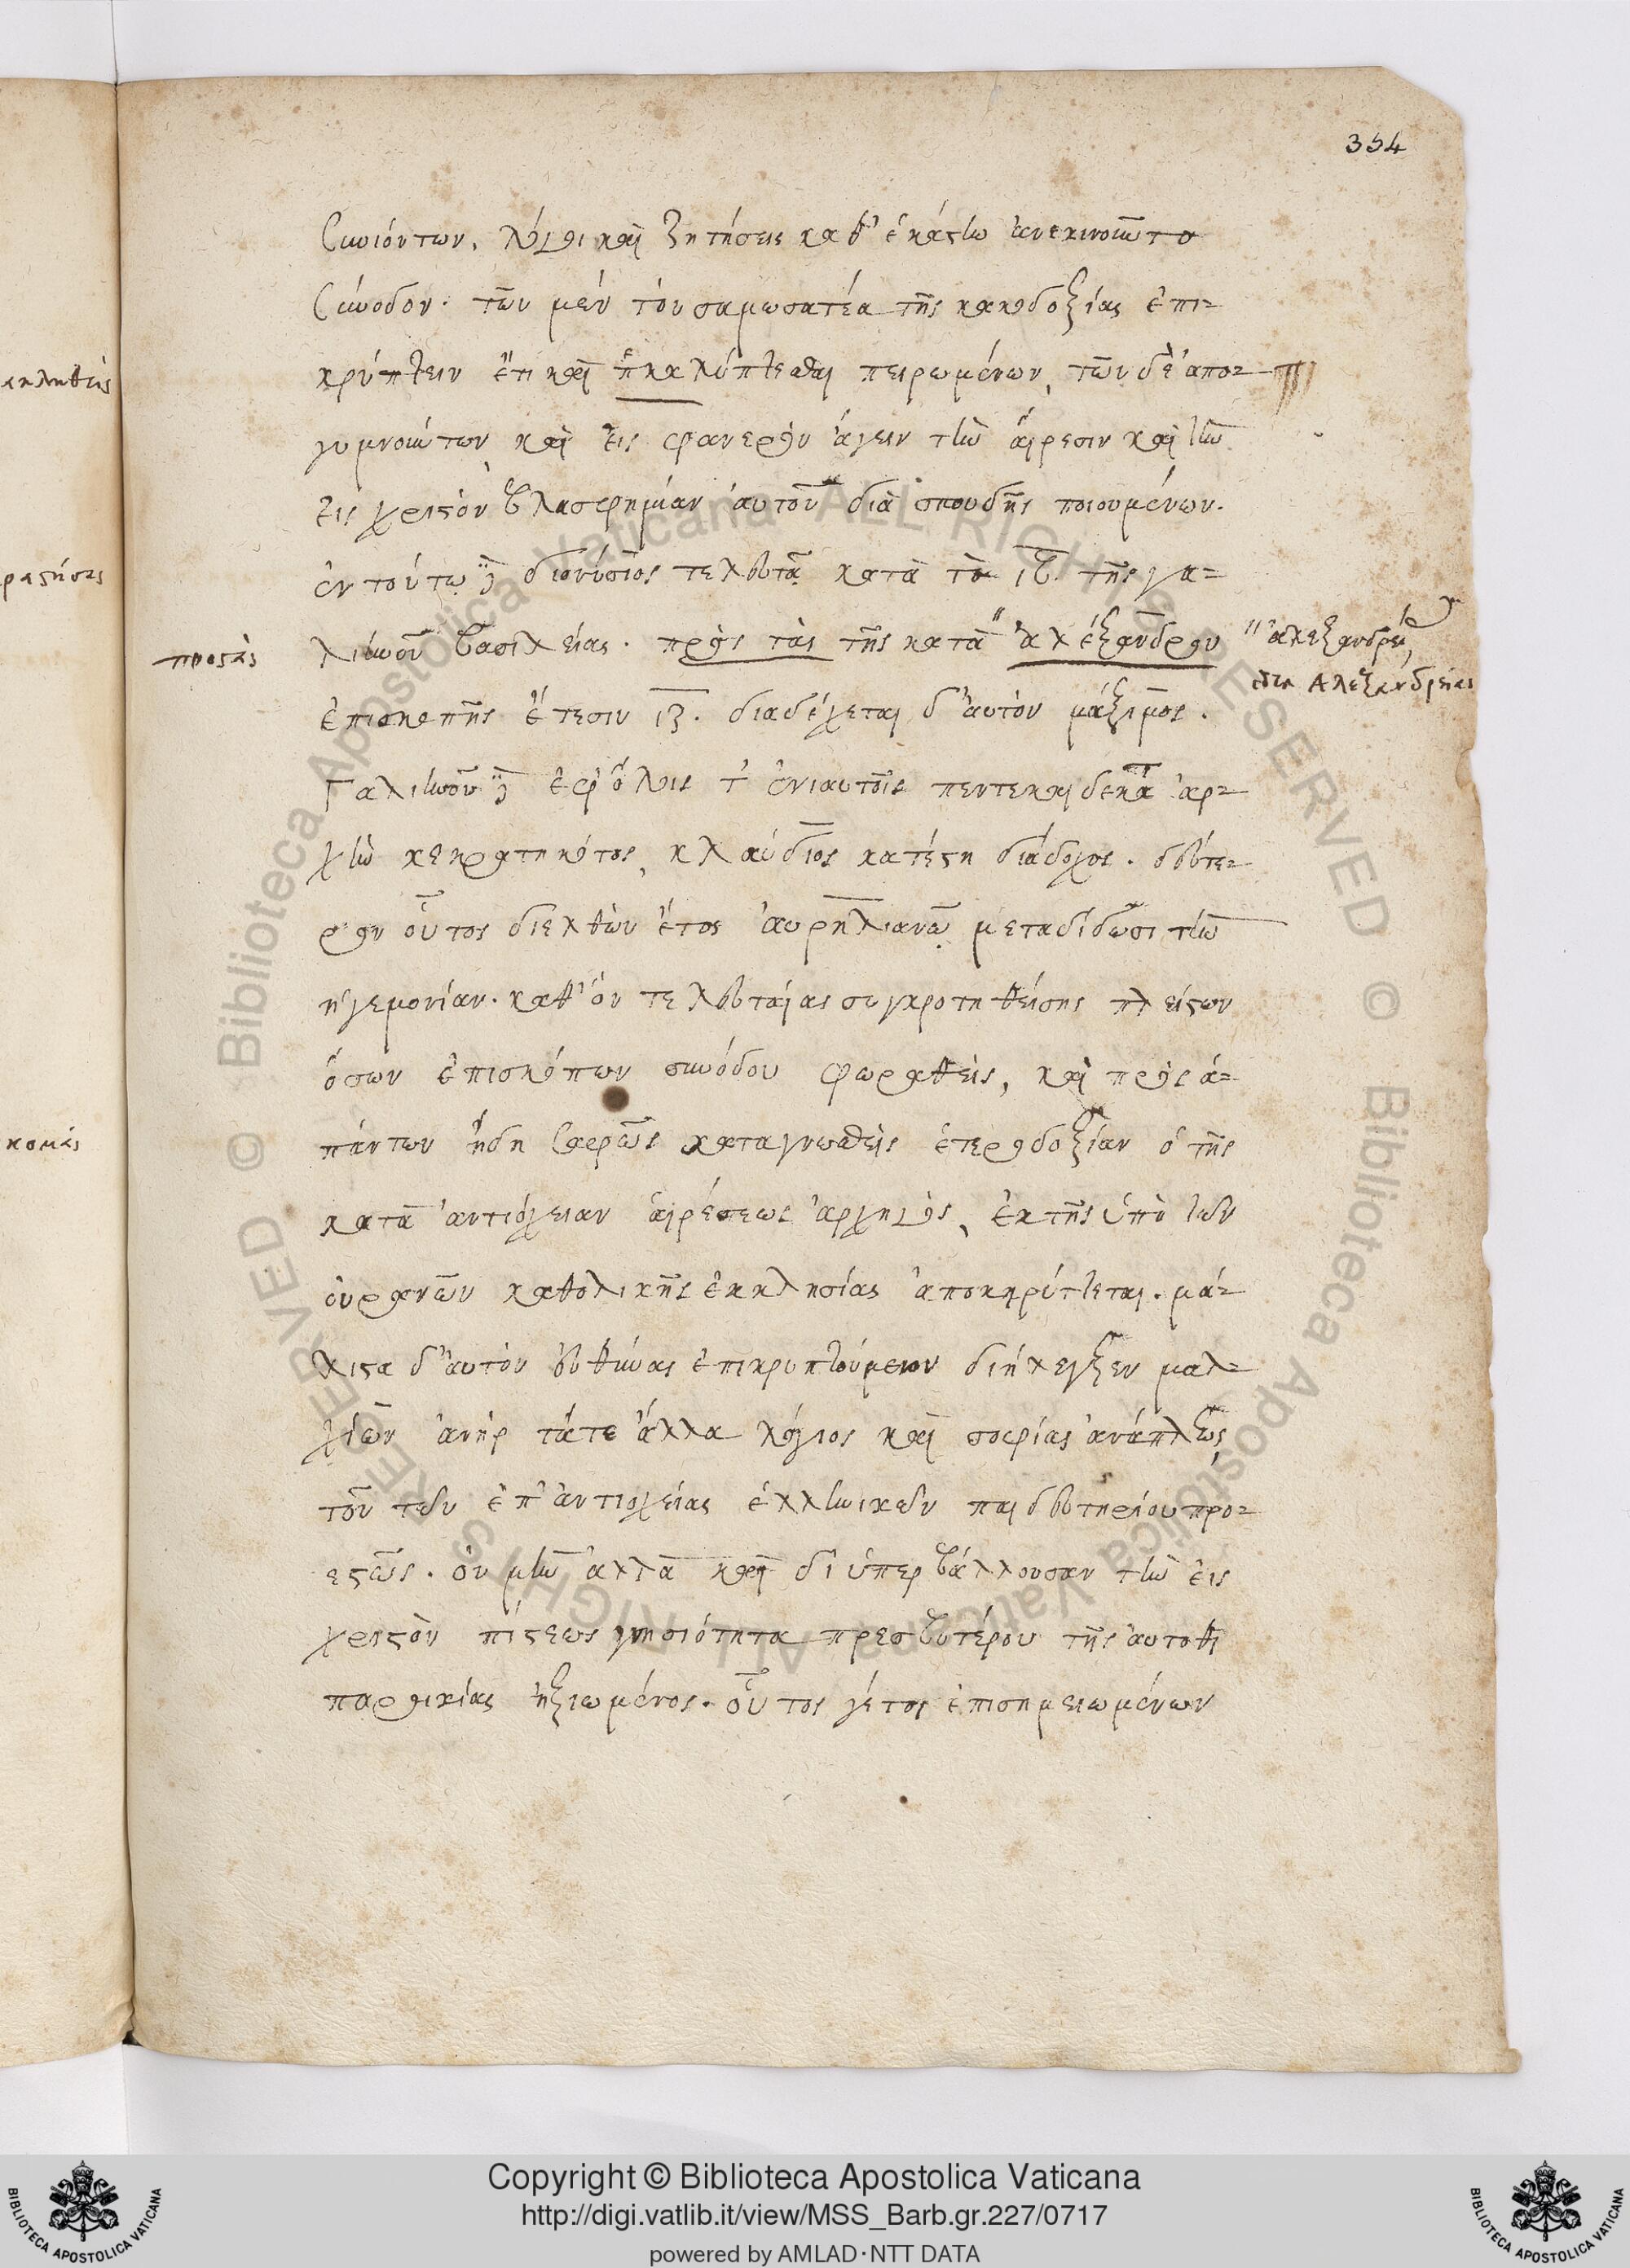 354
συνιόντων, λόγοι καὶ ζητήσεις καθ' ἑκάστην ἀνεκινοῦντο
σύνοδον· τῶν μὲν τὸν σαμωσατέα τῆς κακοδοξίας ἐπι-
κρύπτειν ἔτι καὶ πκαλύπτεσθαι πειρωμένων, τῶν δὲ ἀπο-
γυμνούντων καὶ εἰς φανερὸν ἄγειν τὴν αἵρεσιν καὶ τὴν
εἰς χριστὸν βλασφημίαν αὐτοῦ διὰ σπουδῆς ποιουμένων.
ἐν τούτῳ δὲ διονύσιος τελευτᾷ κατὰ τὸ ιβ. τῆς γα-
προστὰς λιήνου βασιλείας. πρὸς τὰς τῆς κατὰ " ἀλέξανδρον " ἀλεξανδρεί
Αλεξανδρείας
ἐπισκοπῆς ἔτεσιν ιζ. διαδέχεται δ' αὐτὸν μάξιμος.
Γαλιήνου δὲ ἐφ' ὅλοις τ' ἐνιαυτοῖς πεντεκαίδεκα ἀρ-
χὴν κεκρατηκότος, κλαύδιος κατέστη διάδοχος. δεύτε-
ρον οὗτος διελθὼν ἔτος αὐρηλιανῷ μεταδίδωσι τὴν
ἡγεμονίαν. καθ' ὃν τελευταίας συγκροτηθείσης πλείστων
ὅσων ἐπισκόπων συνόδου φωραθεὶς, καὶ πρὸς ἁ-
πάντων ἤδη σαφῶς καταγνωσθεὶς ἑτεροδοξίαν ὁ τῆς
κατὰ ἀντιόχειαν αἱρέσεως ἀρχηγὸς, ἐκ τῆς ὑπὸ τὸν
οὐρανῶν καθολικῆς ἐκκλησίας ἀποκηρύττεται. μά-
λιστα δ' αὐτὸν εὐθύνας ἐπικρυπτούμενον διήλεγξεν μαλ-
χίων ἀνὴρ τά τε ἄλλα λόγιος καὶ σοφίας ἀνάπλεως
τοῦ τῶν ἐπ' ἀντιοχείας ἑλληνικῶν παιδευτηρίου προ-
εστώς. οὐ μὴν ἀλλὰ καὶ δι' ὑπερβάλλουσαν τὴν εἰς
χριστὸν πίστεως γνησιότητα πρεσβυτέρου τῆς αὐτόθι
παροικίας ἠξιωμένος. οὗτος γέ τοι ἐπισημειωμένων
Copyright © Biblioteca Apostolica Vaticana
http://digi.vatlib.it/view/MSS_Barb.gr.227/0717
powered by AMLAD·NTT DATA
BIBLIOTECA APOSTOLICA VATICANA
BIBLIOTECA APOSTOLICA VATICANA